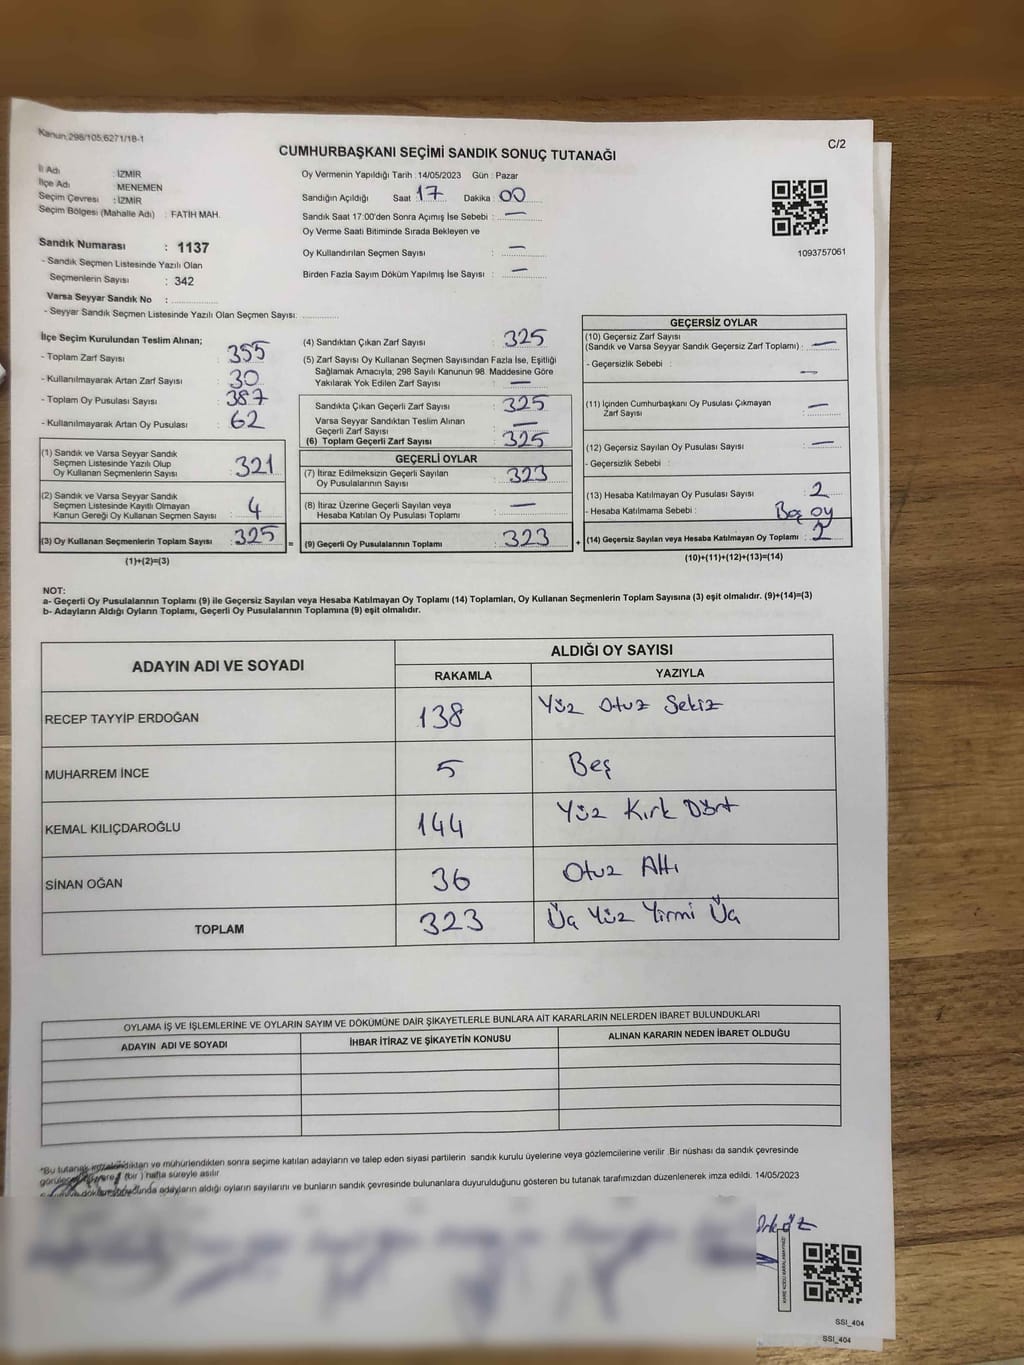 Kanun:298/105;6271/18-1
C/2
CUMHURBAŞKANI SEÇİMİ SANDIK SONUÇ TUTANAĞI
İl Adı : İZMİR
İlçe Adı : MENEMEN
Seçim Çevresi : İZMİR
Seçim Bölgesi (Mahalle Adı) : FATİH MAH.
Sandık Numarası : 1137
- Sandık Seçmen Listesinde Yazılı Olan
Seçmenlerin Sayısı : 342
Varsa Seyyar Sandık No :
- Seyyar Sandık Seçmen Listesinde Yazılı Olan Seçmen Sayısı:
Oy Vermenin Yapıldığı Tarih : 14/05/2023 Gün : Pazar
Sandığın Açıldığı Saat 17 Dakika : 00
Sandık Saat 17:00'den Sonra Açımış İse Sebebi : —
Oy Verme Saati Bitiminde Sırada Bekleyen ve
Oy Kullandırılan Seçmen Sayısı : —
Birden Fazla Sayım Döküm Yapılmış İse Sayısı : —
1093757061
İlçe Seçim Kurulundan Teslim Alınan;
- Toplam Zarf Sayısı : 355
- Kullanılmayarak Artan Zarf Sayısı : 30
- Toplam Oy Pusulası Sayısı : 387
- Kullanılmayarak Artan Oy Pusulası : 62
(1) Sandık ve Varsa Seyyar Sandık
Seçmen Listesinde Yazılı Olup
Oy Kullanan Seçmenlerin Sayısı : 321
(2) Sandık ve Varsa Seyyar Sandık
Seçmen Listesinde Kayıtlı Olmayan
Kanun Gereği Oy Kullanan Seçmen Sayısı : 4
(3) Oy Kullanan Seçmenlerin Toplam Sayısı : 325
(1)+(2)=(3)
(4) Sandıktan Çıkan Zarf Sayısı : 325
(5) Zarf Sayısı Oy Kullanan Seçmen Sayısından Fazla İse, Eşitliği
Sağlamak Amacıyla; 298 Sayılı Kanunun 98. Maddesine Göre
Yakılarak Yok Edilen Zarf Sayısı : —
Sandıkta Çıkan Geçerli Zarf Sayısı : 325
Varsa Seyyar Sandıktan Teslim Alınan
Geçerli Zarf Sayısı : —
(6) Toplam Geçerli Zarf Sayısı : 325
GEÇERLİ OYLAR
(7) İtiraz Edilmeksizin Geçerli Sayılan
Oy Pusulalarının Sayısı : 323
(8) İtiraz Üzerine Geçerli Sayılan veya
Hesaba Katılan Oy Pusulası Toplamı : —
= (9) Geçerli Oy Pusulalarının Toplamı : 323
GEÇERSİZ OYLAR
(10) Geçersiz Zarf Sayısı
(Sandık ve Varsa Seyyar Sandık Geçersiz Zarf Toplamı) : —
- Geçersizlik Sebebi : —
(11) İçinden Cumhurbaşkanı Oy Pusulası Çıkmayan
Zarf Sayısı : —
(12) Geçersiz Sayılan Oy Pusulası Sayısı : —
- Geçersizlik Sebebi :
(13) Hesaba Katılmayan Oy Pusulası Sayısı : 2
- Hesaba Katılmama Sebebi : Boş oy
+ (14) Geçersiz Sayılan veya Hesaba Katılmayan Oy Toplamı : 2
(10)+(11)+(12)+(13)=(14)
NOT:
a- Geçerli Oy Pusulalarının Toplamı (9) ile Geçersiz Sayılan veya Hesaba Katılmayan Oy Toplamı (14) Toplamları, Oy Kullanan Seçmenlerin Toplam Sayısına (3) eşit olmalıdır. (9)+(14)=(3)
b- Adayların Aldığı Oyların Toplamı, Geçerli Oy Pusulalarının Toplamına (9) eşit olmalıdır.
ADAYIN ADI VE SOYADI ALDIĞI OY SAYISI
RAKAMLA YAZIYLA
RECEP TAYYİP ERDOĞAN 138 Yüz Otuz Sekiz
MUHARREM İNCE 5 Beş
KEMAL KILIÇDAROĞLU 144 Yüz Kırk Dört
SİNAN OĞAN 36 Otuz Altı
TOPLAM 323 Üç Yüz Yirmi Üç
OYLAMA İŞ VE İŞLEMLERİNE VE OYLARIN SAYIM VE DÖKÜMÜNE DAİR ŞİKAYETLERLE BUNLARA AİT KARARLARIN NELERDEN İBARET BULUNDUKLARI
ADAYIN ADI VE SOYADI İHBAR İTİRAZ VE ŞİKAYETİN KONUSU ALINAN KARARIN NEDEN İBARET OLDUĞU
*Bu tutanak imzalandıktan ve mühürlendikten sonra seçime katılan adayların ve talep eden siyasi partilerin sandık kurulu üyelerine veya gözlemcilerine verilir. Bir nüshası da sandık çevresinde
1 (bir) hafta süreyle asılır.
adayların aldığı oyların sayılarını ve bunların sandık çevresinde bulunanlara duyurulduğunu gösteren bu tutanak tarafımızdan düzenlenerek imza edildi. 14/05/2023
SSI_404
SSI_404